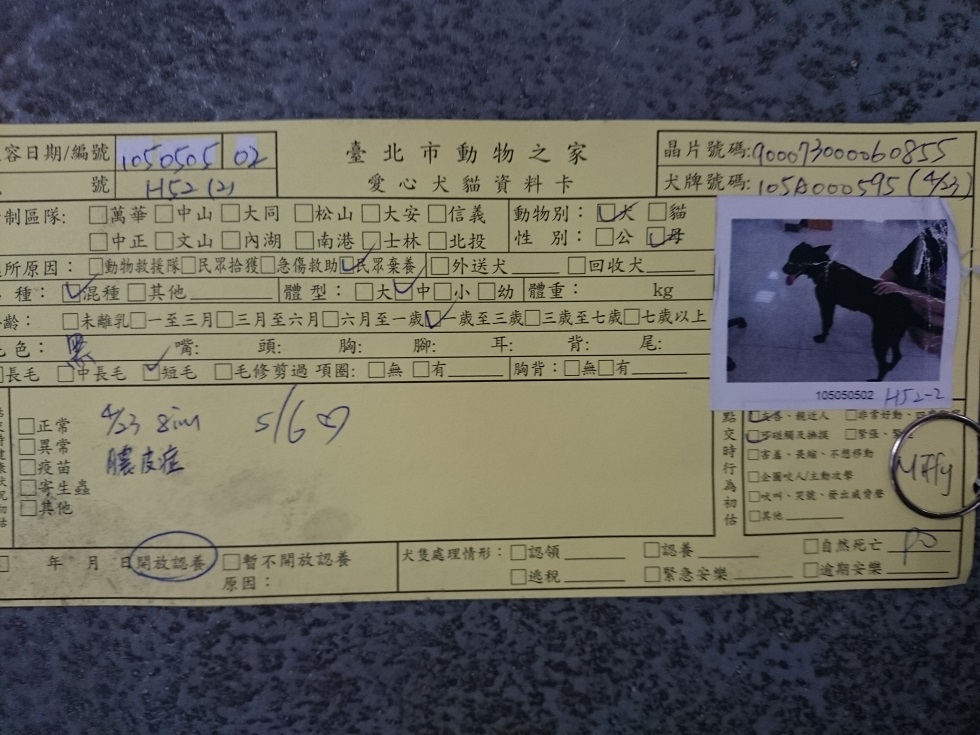 容日期/編號 1050505 02
臺北市動物之家
晶片號碼:900073000060855
號 H52(2)
愛心犬貓資料卡
犬牌號碼:105A000595(4/23)
制區隊: □萬華 □中山 □大同 □松山 □大安 □信義
動物別: □犬 □貓
□中正 □文山 □內湖 □南港 □士林 □北投
性別: □公 □母
所原因: □動物救援隊 □民眾拾獲 □急傷救助 □民眾棄養 □外送犬 □回收犬
種: □混種 □其他
體型: □大 □中 □小 □幼 體重: kg
齡: □未離乳 □一至三月 □三月至六月 □六月至一歲 □一歲至三歲 □三歲至七歲 □七歲以上
色: 黑 嘴: 頭: 胸: 腳: 耳: 背: 尾:
□長毛 □中長毛 □短毛 □毛修剪過 項圈: □無 □有 胸背: □無 □有
105050502 H52-2
□正常
□異常
□疫苗
□寄生蟲
□其他
4/23 5/6♡
膿皮症
點交時行為初估
□友善、親近人 □非常好動、
□可碰觸及撫摸 □緊張、
□害羞、畏縮、不想移動
□企圖咬人/主動攻擊
□吠叫、哭號、發出威脅聲
□其他
Miffy
年 月 日 開放認養 □暫不開放認養
原因:
犬隻處理情形: □認領 □認養 □自然死亡
□逃脫 □緊急安樂 □逾期安樂